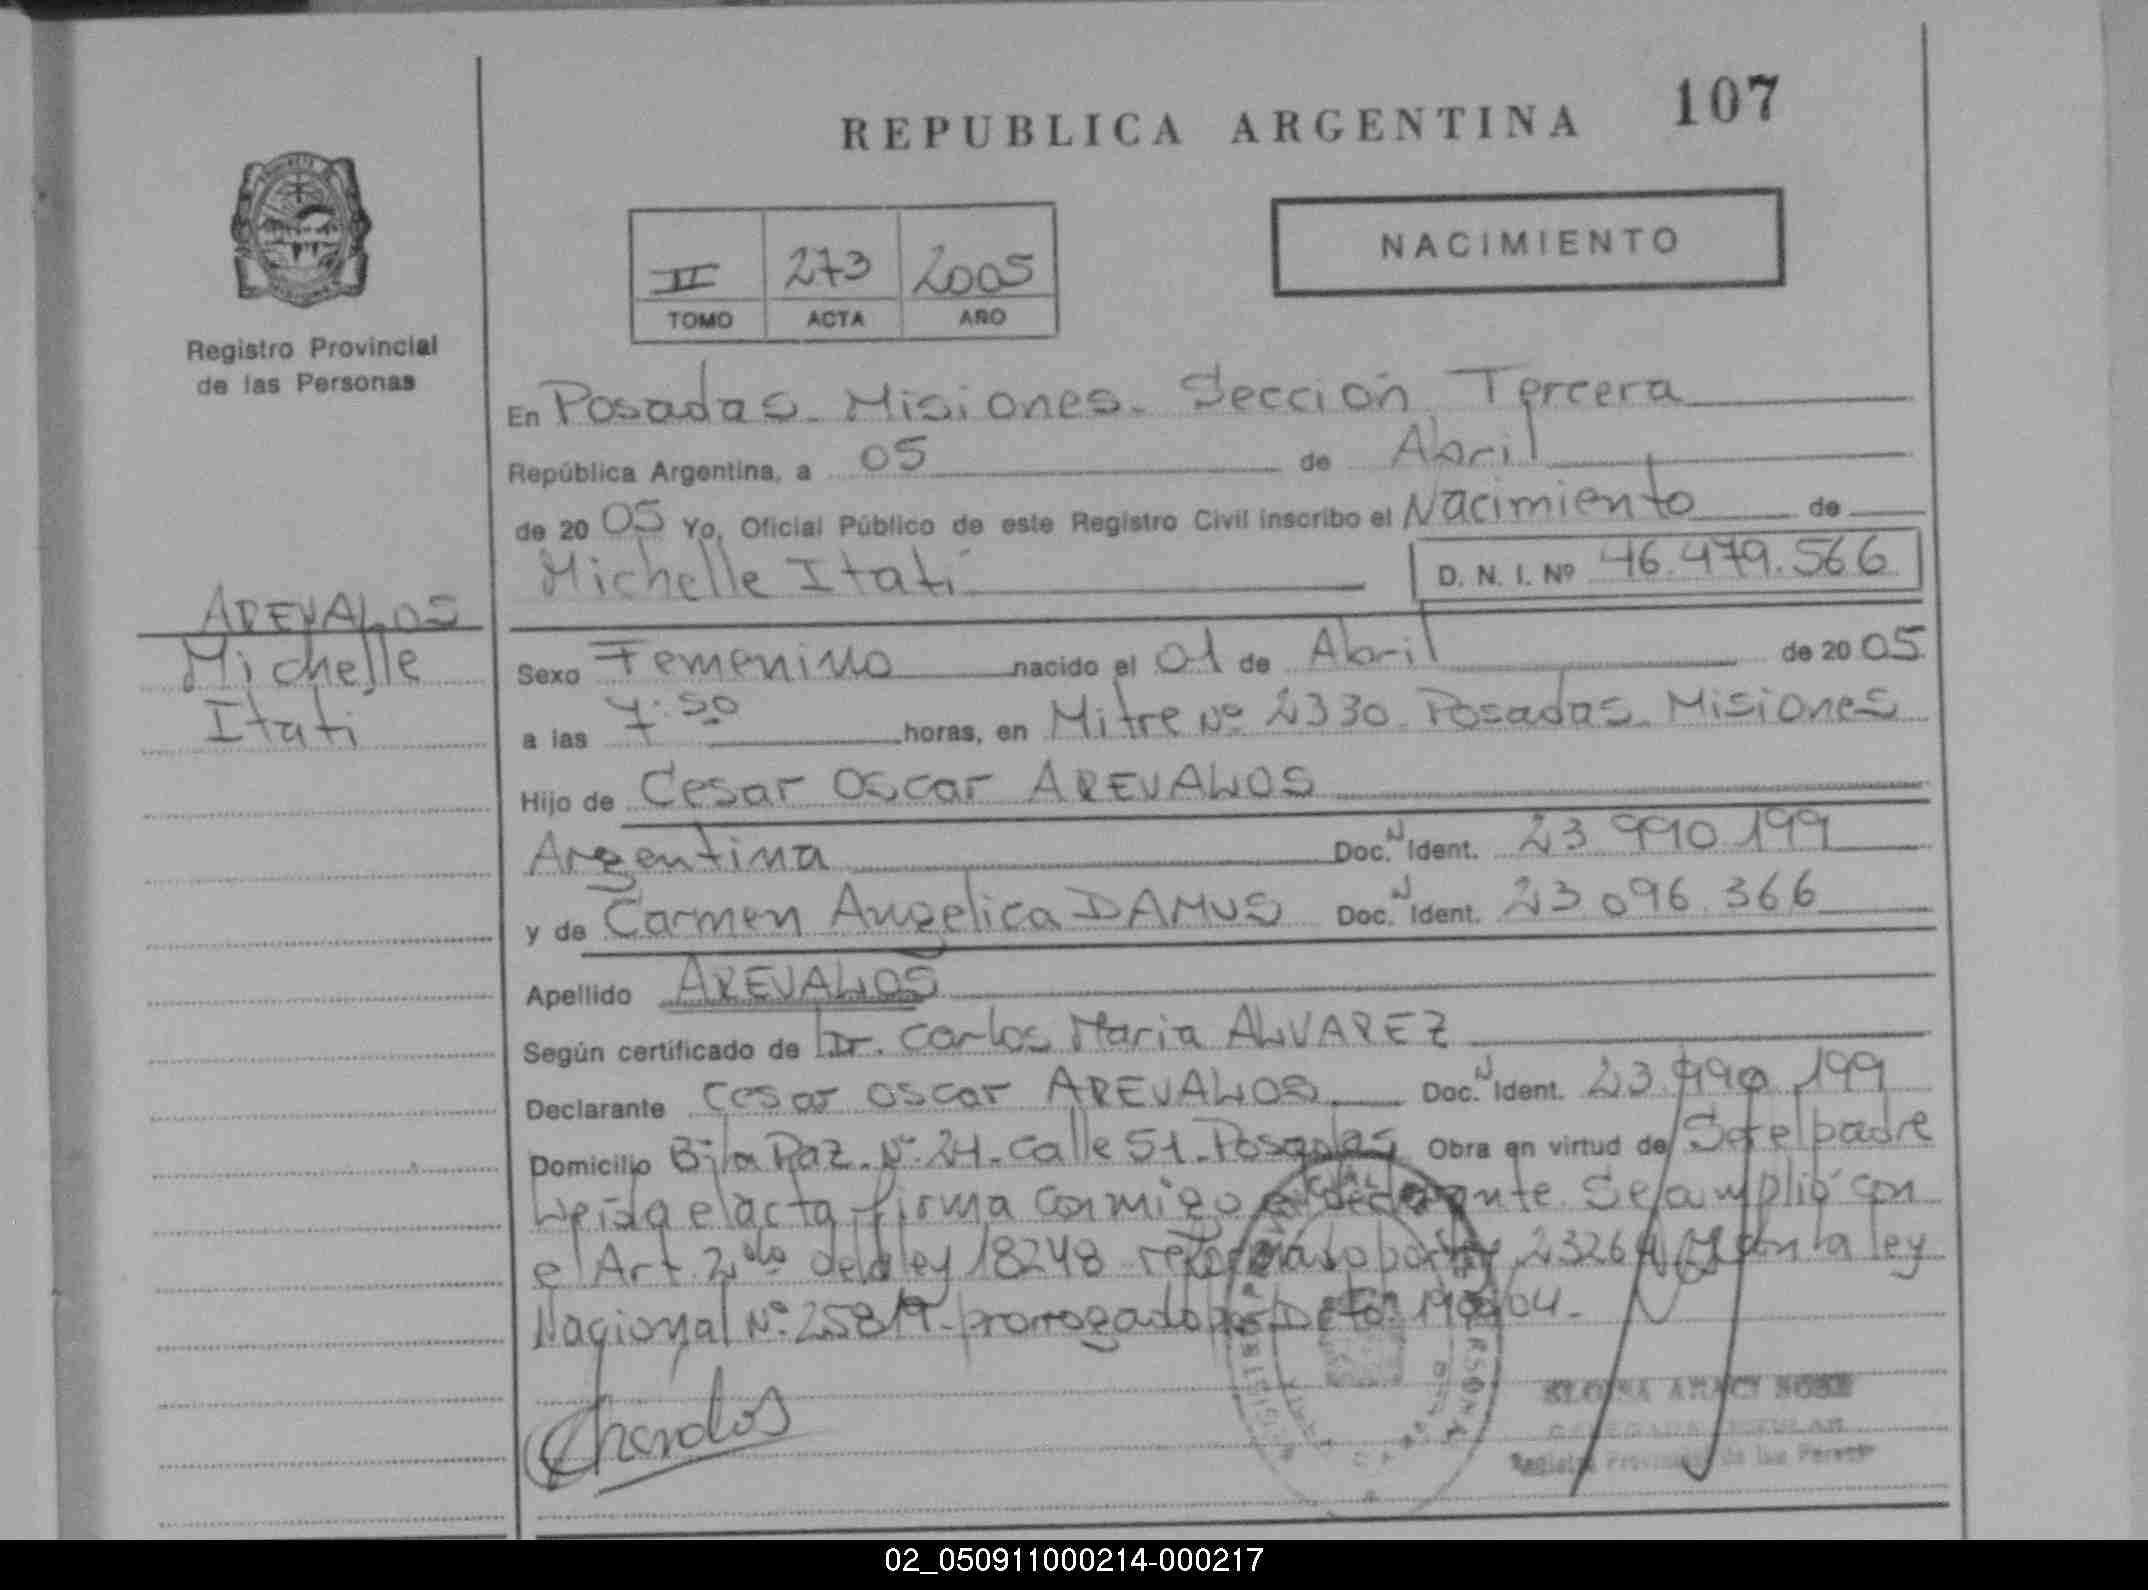 REPUBLICA ARGENTINA 107
NACIMIENTO
II 273 2005
TOMO ACTA AÑO
Registro Provincial
de las Personas
En Posadas - Misiones - Sección Tercera
República Argentina, a 05 de Abril
de 20 05 Yo, Oficial Público de este Registro Civil inscribo el Nacimiento de
Michelle Itatí D. N. I. Nº 46.479.566
AREVALOS
Michelle
Itatí
Sexo Femenino nacido el 01 de Abril de 20 05
a las 7:50 horas, en Mitre Nº 2330 - Posadas - Misiones
Hijo de Cesar Oscar AREVALOS
Argentina Doc. N Ident. 23.990.199
y de Carmen Angelica DAMUS Doc. N Ident. 23.096.366
Apellido AREVALOS
Según certificado de Dr. Carlos Maria ALVAREZ
Declarante Cesar Oscar AREVALOS Doc. N Ident. 23.990.199
Domicilio Bº la Paz - Nº 24 - Calle 51 - Posadas Obra en virtud de Ser el padre
Leida el acta firma conmigo el declarante. Se cumplió con
el Art. 2do de la ley 18248 reformado por ley 23264 y con la ley
Nacional Nº 25819 - prorrogado por Dcto.
Registro Provincial de las Personas
02_050911000214-000217